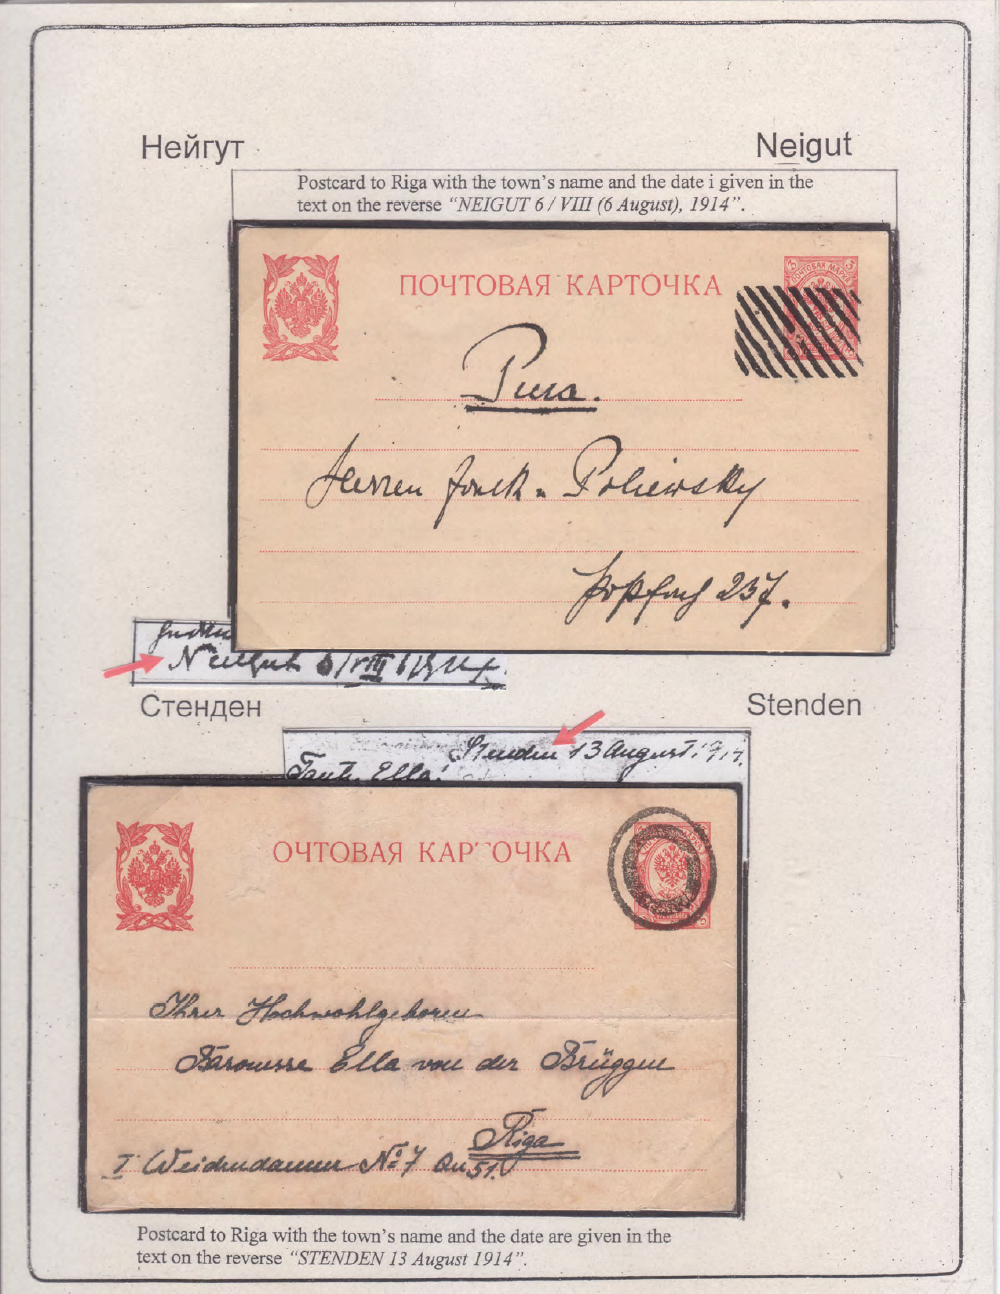 Нейгут Neigut
Postcard to Riga with the town's name and the date i given in the
text on the reverse "NEIGUT 6 / VIII (6 August), 1914".
ПОЧТОВАЯ КАРТОЧКА
Рига.
Herren Jonck & Poliewsky
Postfach 237.
Neigut 6/VIII
Стенден Stenden
Stenden 13 August 1914.
Tante Ella!
ОЧТОВАЯ КАР ОЧКА
Ihrer Hochwohlgeboren
Baronesse Ella von der Brüggen
Riga
I Weidendamm No 7 Qu 51.
Postcard to Riga with the town's name and the date are given in the
text on the reverse "STENDEN 13 August 1914".